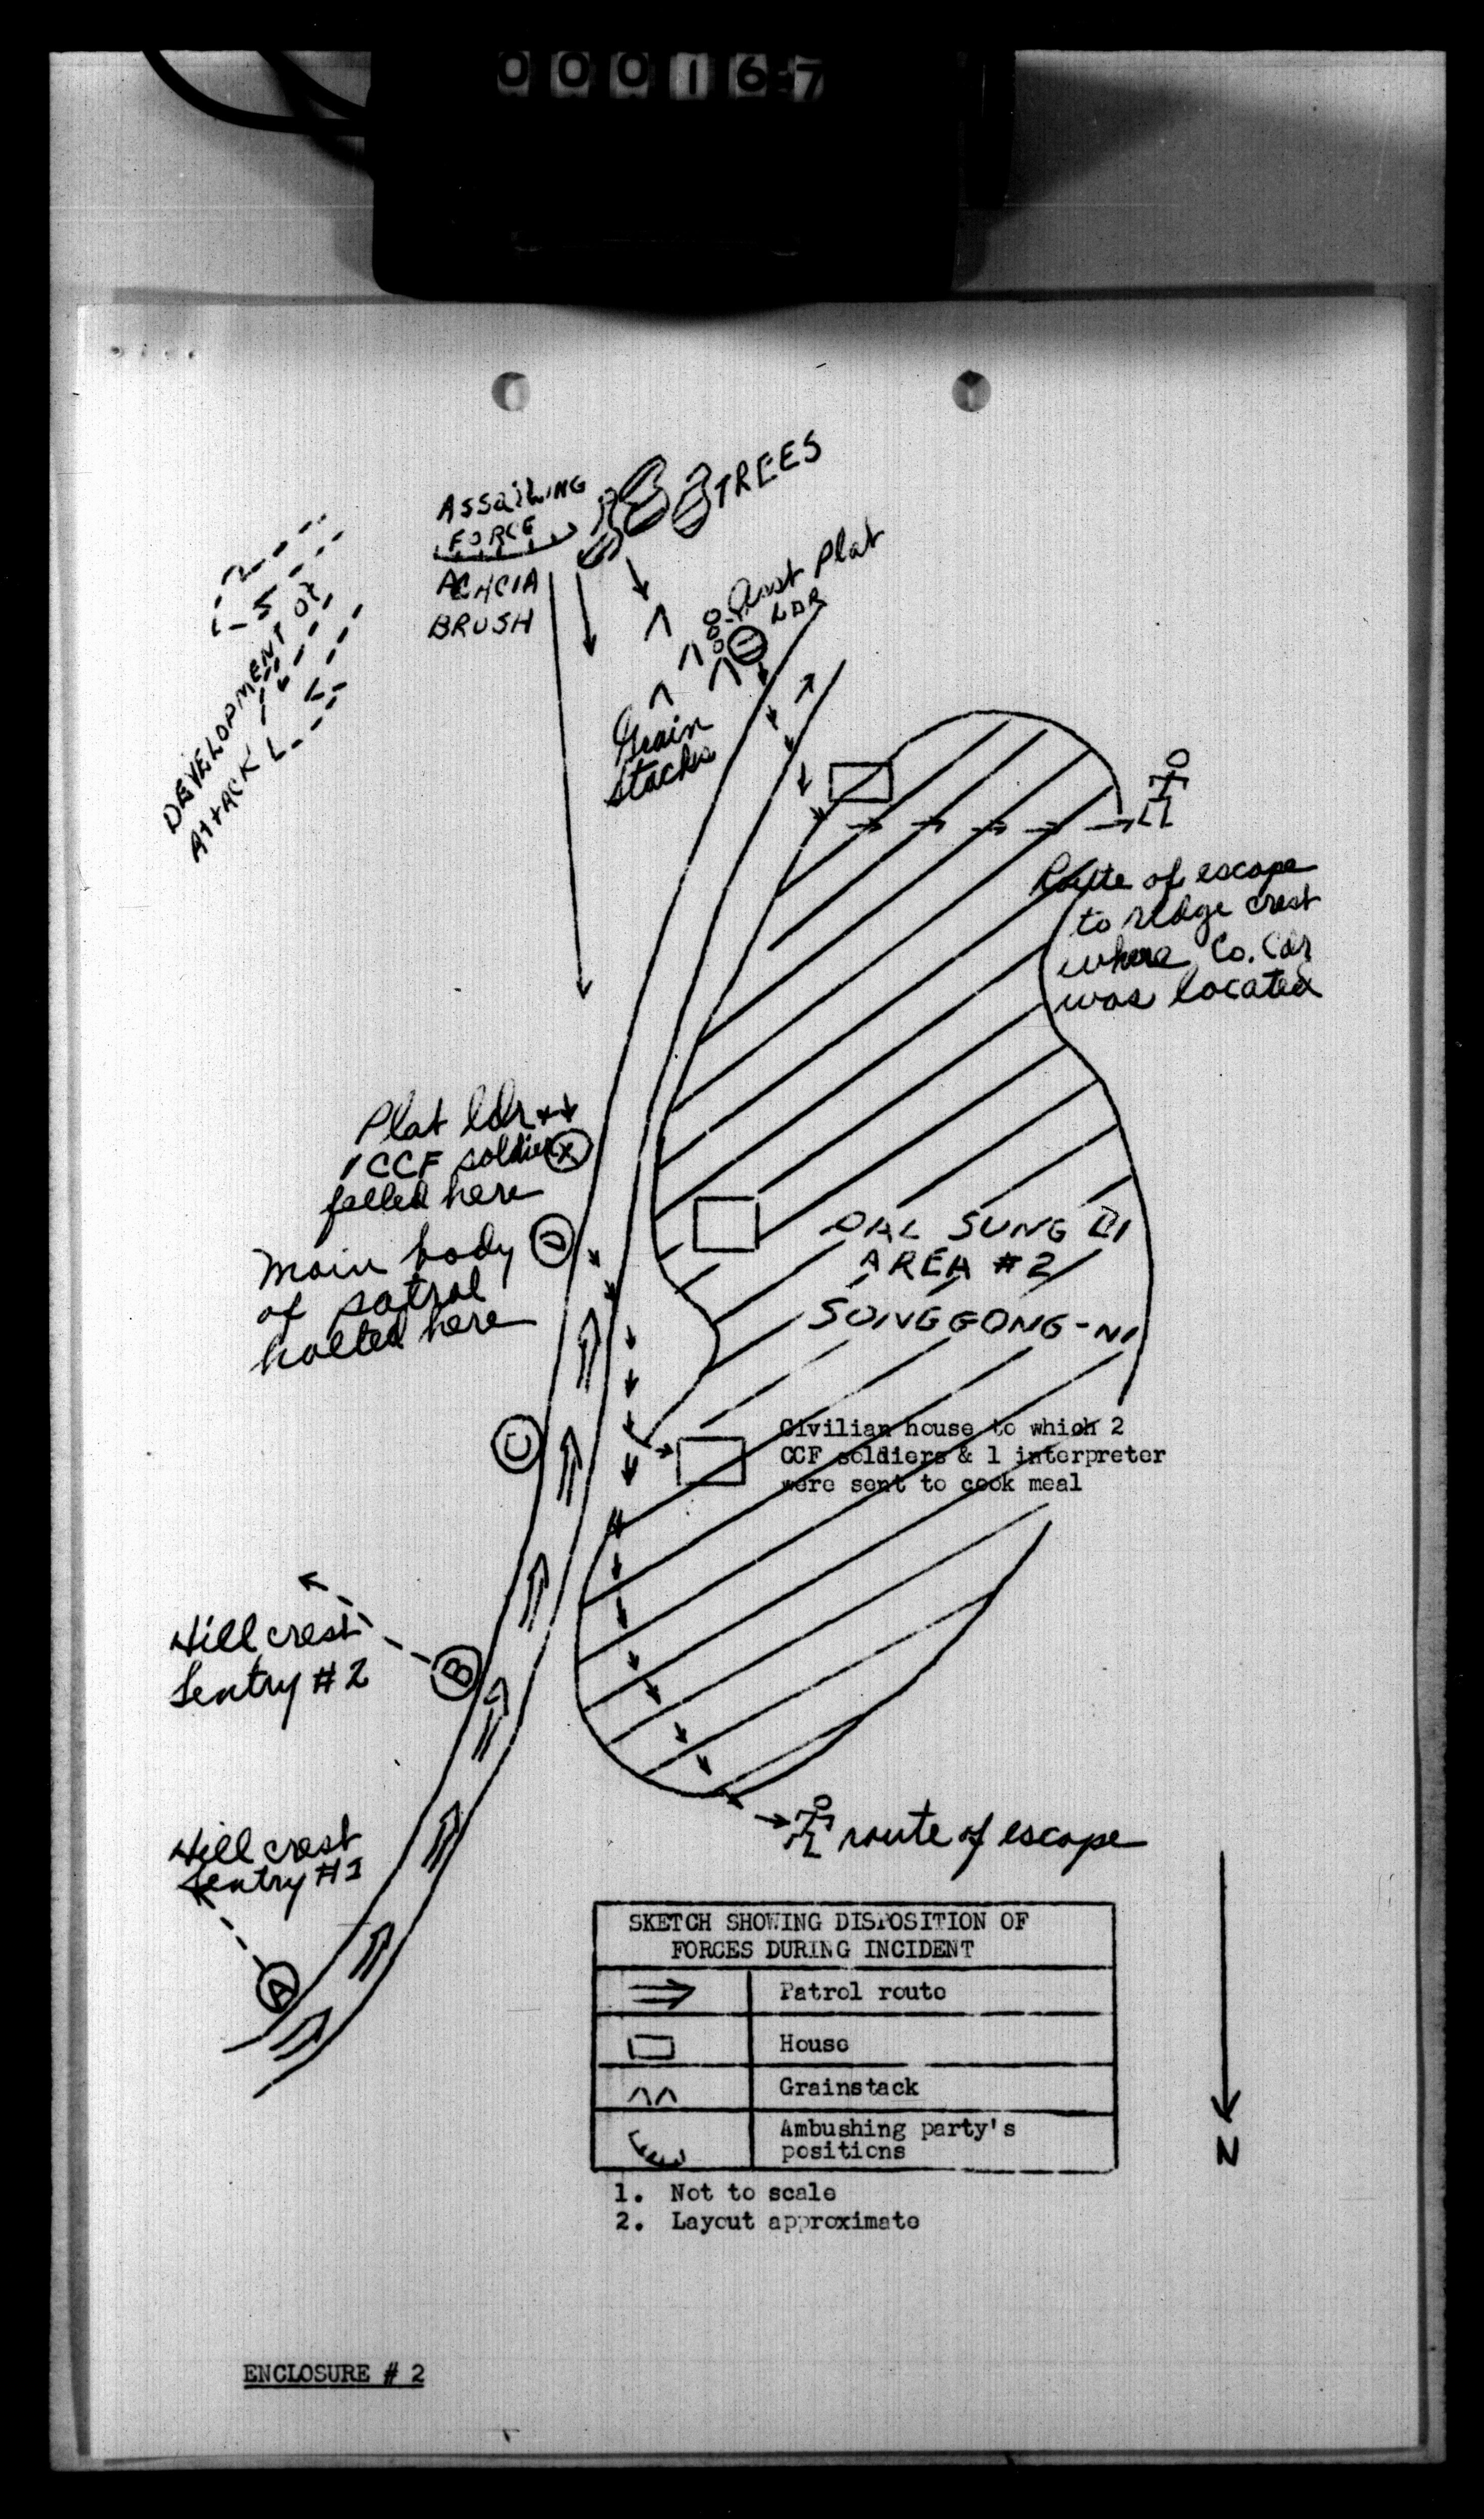 000167
ASSAILING
FORCE
TREES
ACACIA
BRUSH
Asst Plat
LDR
DEVELOPMENT OF
ATTACK
Grain
Stacks
Route of escape
to ridge crest
where Co. Cdr
was located
Plat ldr +
1 CCF soldier X
felled here
Main body D
of patrol
halted here
DAL SUNG RI
AREA #2
SONGGONG-NI
C
Civilian house to which 2
CCF soldiers & 1 interpreter
were sent to cook meal
Hill crest
Sentry #2
B
Hill crest
Sentry #1
A
route of escape
SKETCH SHOWING DISPOSITION OF
FORCES DURING INCIDENT
Patrol route
House
Grainstack
Ambushing party's
positions
1. Not to scale
2. Layout approximate
N
ENCLOSURE # 2